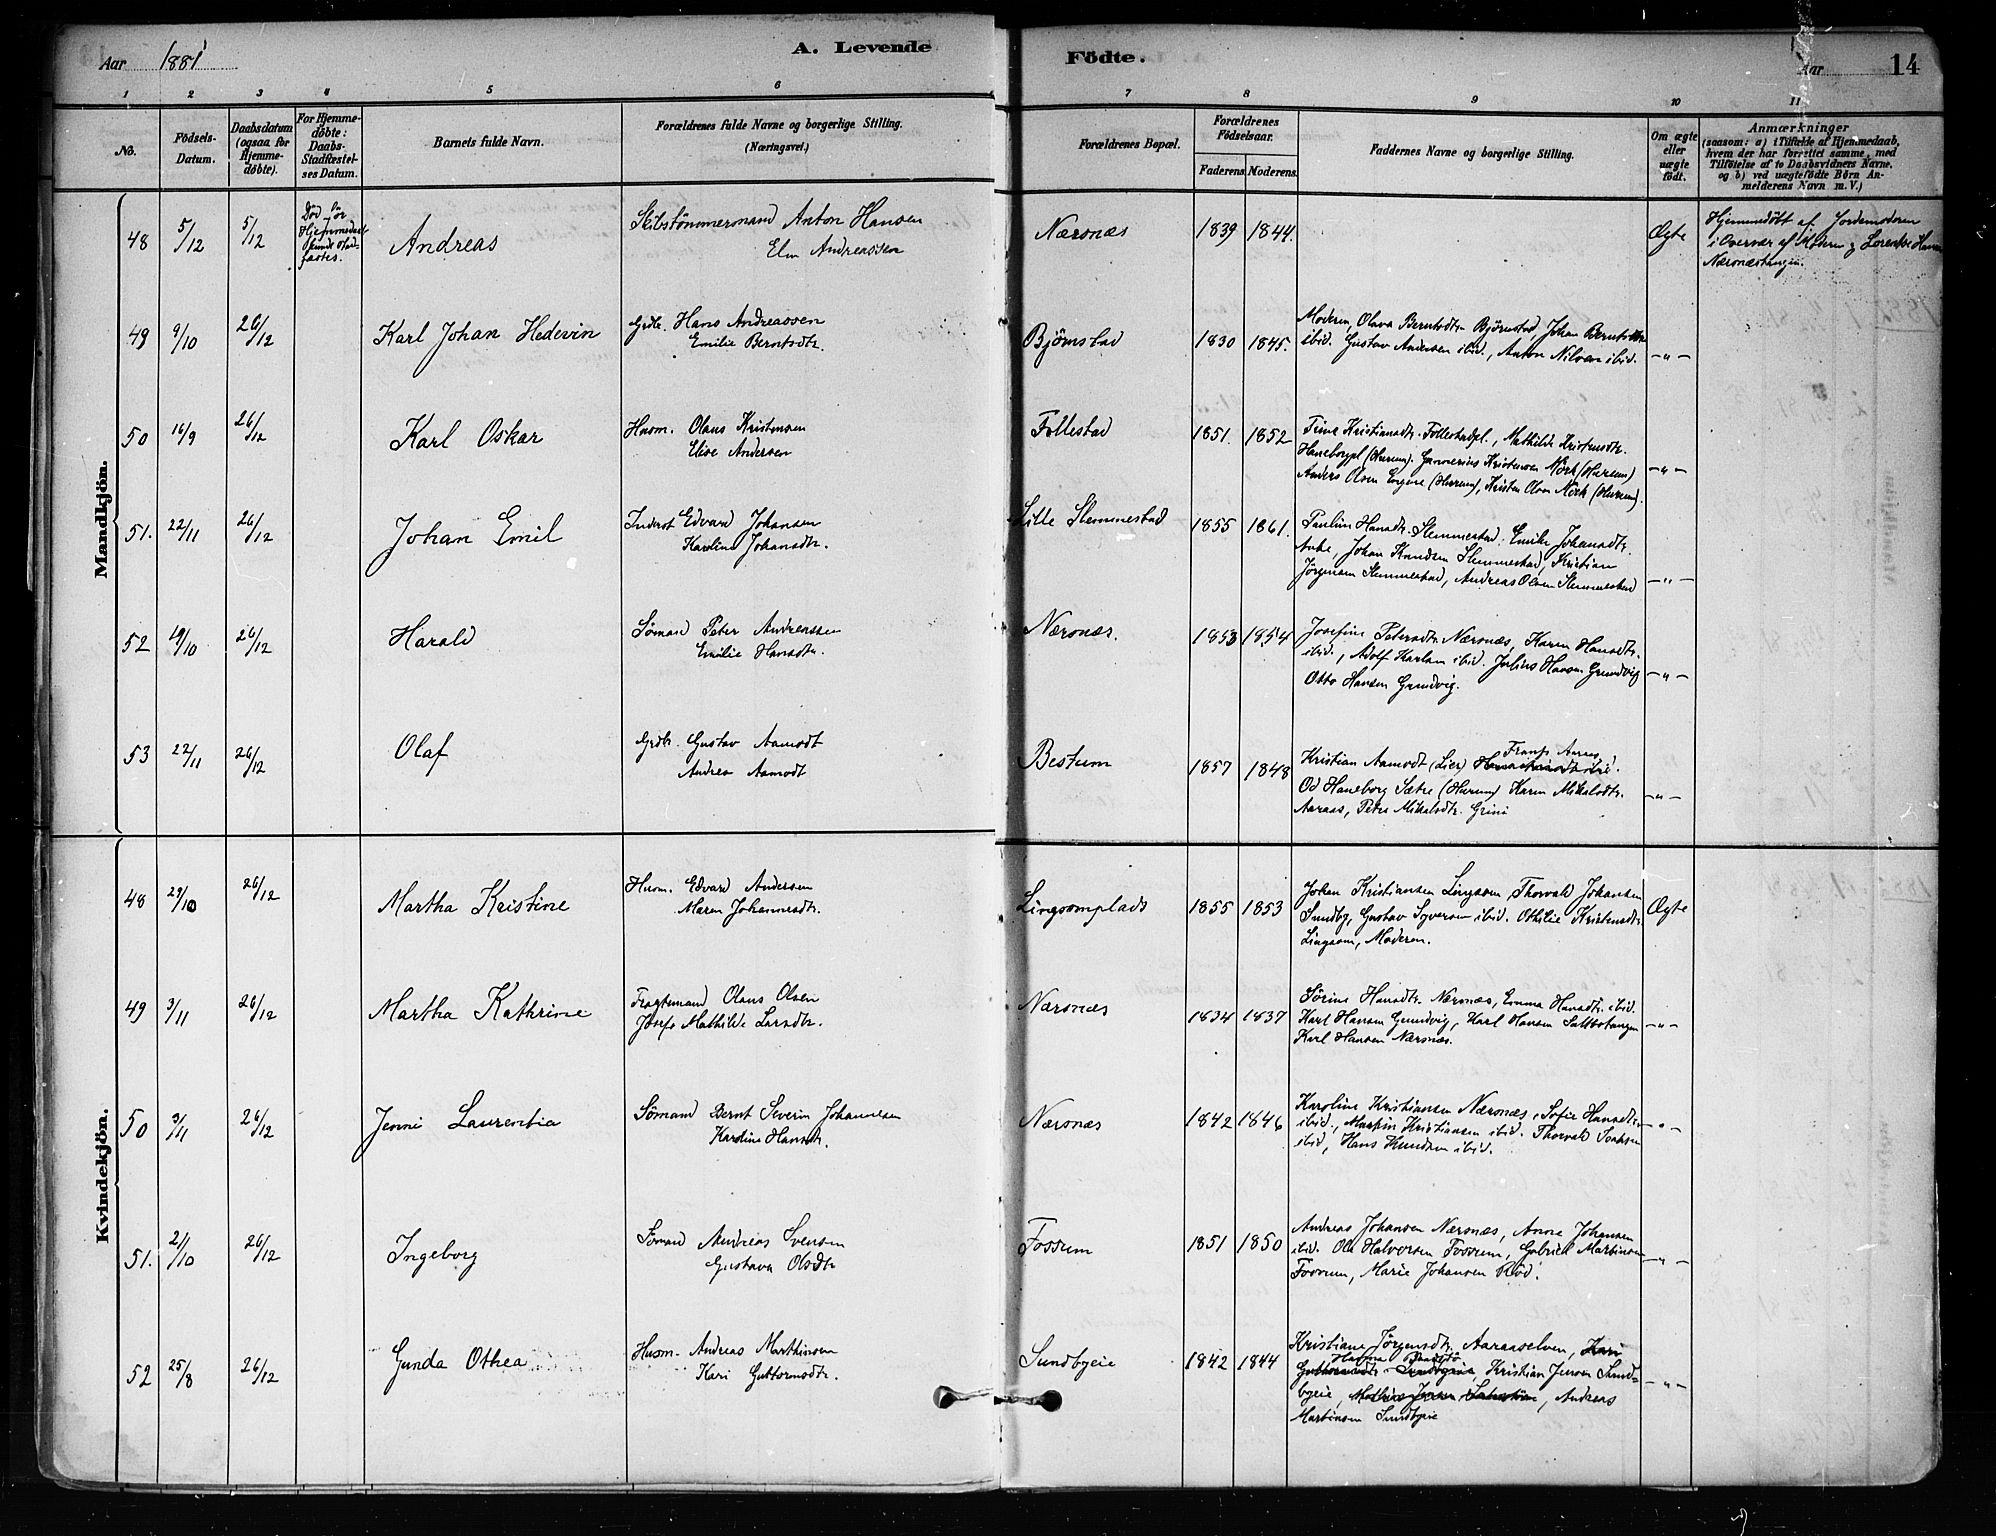 Aar 1881
A. Levende
Födte.
Aar 14
1 2 3 4 5 6 7 8 9 10 11
No.
Födsels-Datum.
Daabsdatum (ogsaa for Hjemme-døbte).
For Hjemme-døbte: Daabs-Stadfæstel-ses Datum.
Barnets fulde Navn.
Forældrenes fulde Navne og borgerlige Stilling. (Næringsvei.)
Forældrenes Bopæl.
Forældrenes Födselsaar.
Faderens Moderens.
Faddernes Navne og borgerlige Stilling.
Om ægte eller uægte födt.
Anmærkninger
(saasom: a) i Tilfælde af Hjemmedaab,
hvem der har forrettet samme, med
Tilföielse af to Daabsvidners Navne,
og b) ved uægtefödte Börn An-
melderens Navn m. V.)
Mandkjön.
48 5/12 5/12 Död för Hjemmedaab kunde stad-fæstes. Andreas Skibstømmermand Anton Hansen
Andreassen
Nærsnæs 1839 1844. Ægte Hjemmedöbt af Jordemoderen
i Overvær af Moderen og Lorentse
Nærsnæstangen.
49 9/10 26/12 Karl Johan Hedevin Grdbr. Hans Andreassen
Emilie Berntsdtr.
Björnstad 1830 1845. Moderen, Olava Berntsdtr. Björnstad, Johan
ibid. Gustav Andersen ibid., Anton Nilsen ibid. —"—
50 14/9 26/12 Karl Oskar Husm. Olaus Kristensen
Elise Andersen
Follestad 1851. 1852 Kristiansdtr. Follestadpl., Mathilde Kristensdtr.
Haneborgpl (Hurum). Gunnerius Kristensen Mörk (Hurum)
Anders Olsen Engene (Hurum), Kristen Olsen Mörk (Hurum). —"—
51. 22/11 26/12 Johan Emil Inderst Edvard Johansen
Karoline Johansdtr.
Lille Slemmestad 1855 1861. Pauline Hansdtr. Slemmestad, Emilie Johansdtr.
Johan Knudsen Slemmestad, Kristian
Jörgensen Slemmestad, Andreas Olsen Slemmestad —"—
52 19/10 26/12 Harald Sömand Peter Andreassen
Emilie Hansdtr.
Nærsnæs. 1853 1854 Josefine Petersdtr. Nærsnæs, Karen Hansdtr.
ibid., Adolf Karlsen ibid. Julius Hansen Grundvig
Otto Hansen Grundvig. —"—
53 22/11 26/12 Olaf Grdbr. Gustav Aamodt
Andrea Aamodt
Bestum 1857 1848 Kristian Aamodt (Lier) Aaraas
Haneborg Sætre (Hurum) Karen Mikalsdtr.
Aaraas, Petra Mikalsdtr. Grini —"—
Kvindekjön.
48 29/10 26/12 Martha Kristine Husm. Edvard Andersen
Maren Johannesdtr.
Lingsomplads 1855 1853 Johan Kristiansen Lingsom, Thorvald Johansen
Sundby, Gustav Syversen ibid. Othilie Kristensdtr.
Lingsom, Moderen. Ægte
49 3/11 26/12 Martha Kathrine Fragtemand Olaus Olsen
Mathilde Larsdtr.
Nærsnæs 1834 1837 Sörine Hansdtr. Nærsnæs, Emma Hansdtr. ibid.
Karl Hansen Grundvig, Karl Hansen
Karl Hansen Nærsnæs. —"—
50 3/11 26/12 Jenni Laurentia Sömand Bernt Severin Johannesen
Karoline Hansdtr.
Nærsnæs 1842 1846 Karoline Kristiansen Nærsnæs, Sofie Hansdtr.
ibid., Martin Kristiansen ibid. Thorvald
ibid, Hans Knudsen ibid. —"—
51. 21/10 26/12 Ingeborg Sömand Andreas Svensen
Gustava Olsdtr
Fossum 1851 1850 Andreas Johansen Nærsnæs, Anne Johansen
ibid. Ole Halvorsen Fossum, Gabriel Martinsen
Fossum, Marie Johansen Röd. —"—
52 25/8 26/12 Gunda Othea Husm. Andreas Marthinsen
Kari Guttormsdtr.
Sundbyeie 1842 1844 Kristiane Jörgensdtr. Aaraaselven, Kari
Hanna
Guttormsdtr. Sundbyeie, Kristian Jensen Sund-
byeie, Jensen, Andreas
Martinsen Sundbyeie —"—